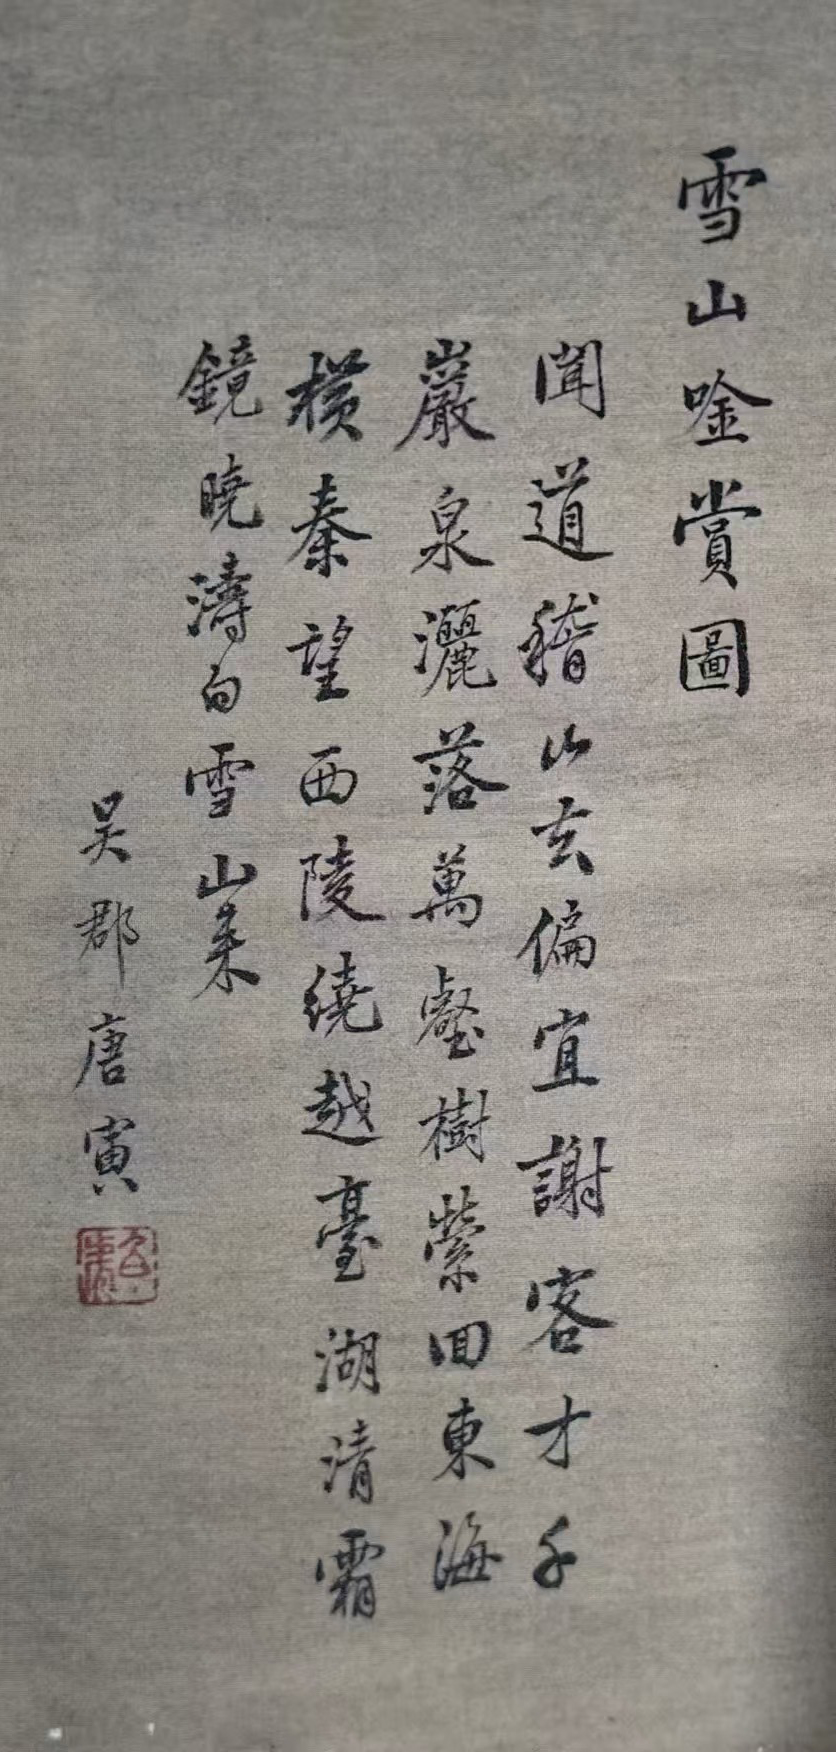 雪山唫賞圖
聞道稽山玄偏宜謝客才千
巖泉灑落萬壑樹縈回東海
橫秦望西陵繞越臺湖清霜
鏡曉濤白雪山來
吳郡唐寅